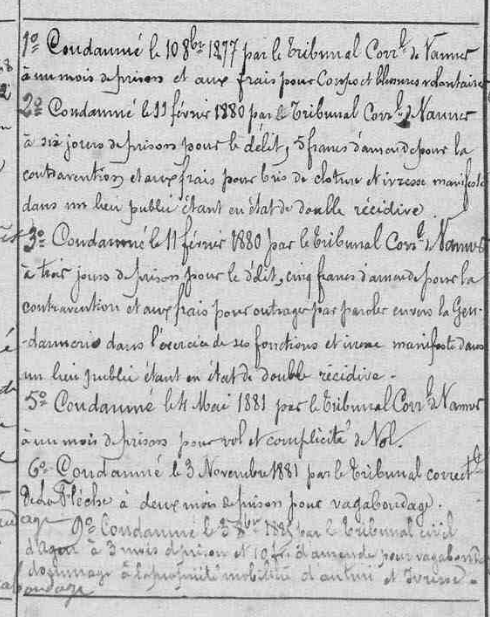 1º Condamné le 10 8bre 1877 par le Tribunal Correl de Vannes
à un mois de prison et aux frais pour Coups et blessures volontaires
2º Condamné le 11 février 1880 par le Tribunal Correl de Vannes
à six jours de prison pour le délit, 5 francs d'amende pour la
contravention et aux frais pour bris de cloture et ivresse manifeste
dans un lieu public étant en état de double récidive
3º Condamné le 11 février 1880 par le Tribunal Correl de Vannes
à trois jours de prison pour le délit, cinq francs d'amende pour la
contravention et aux frais pour outrages par paroles envers la Gen-
-darmerie dans l'exercice de ses fonctions et ivresse manifeste dans
un lieu public étant en état de double récidive.
5º Condamné le 4 Mai 1881 par le Tribunal Correl de Vannes
à un mois de prison pour vol et complicité de Vol.
6º Condamné le 3 Novembre 1881 par le Tribunal correctel
de La Flèche à deux mois de prison pour vagabondage.
9º Condamné le 3 8bre par le Tribunal civil
à 3 mois de prison et 10 fr d'amende pour vagabondage
dommage à la propriété mobilière d'autrui et Ivresse